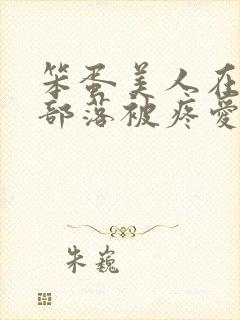 笨蛋美人在
部落被疼爱
朱巍